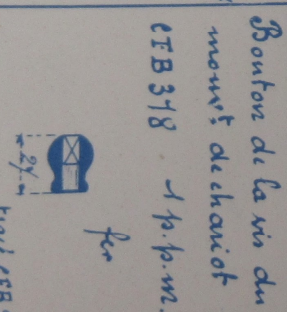 Bouton de la vis du
mouvt de chariot
CTB 378 1 p.p.m.
fer
24